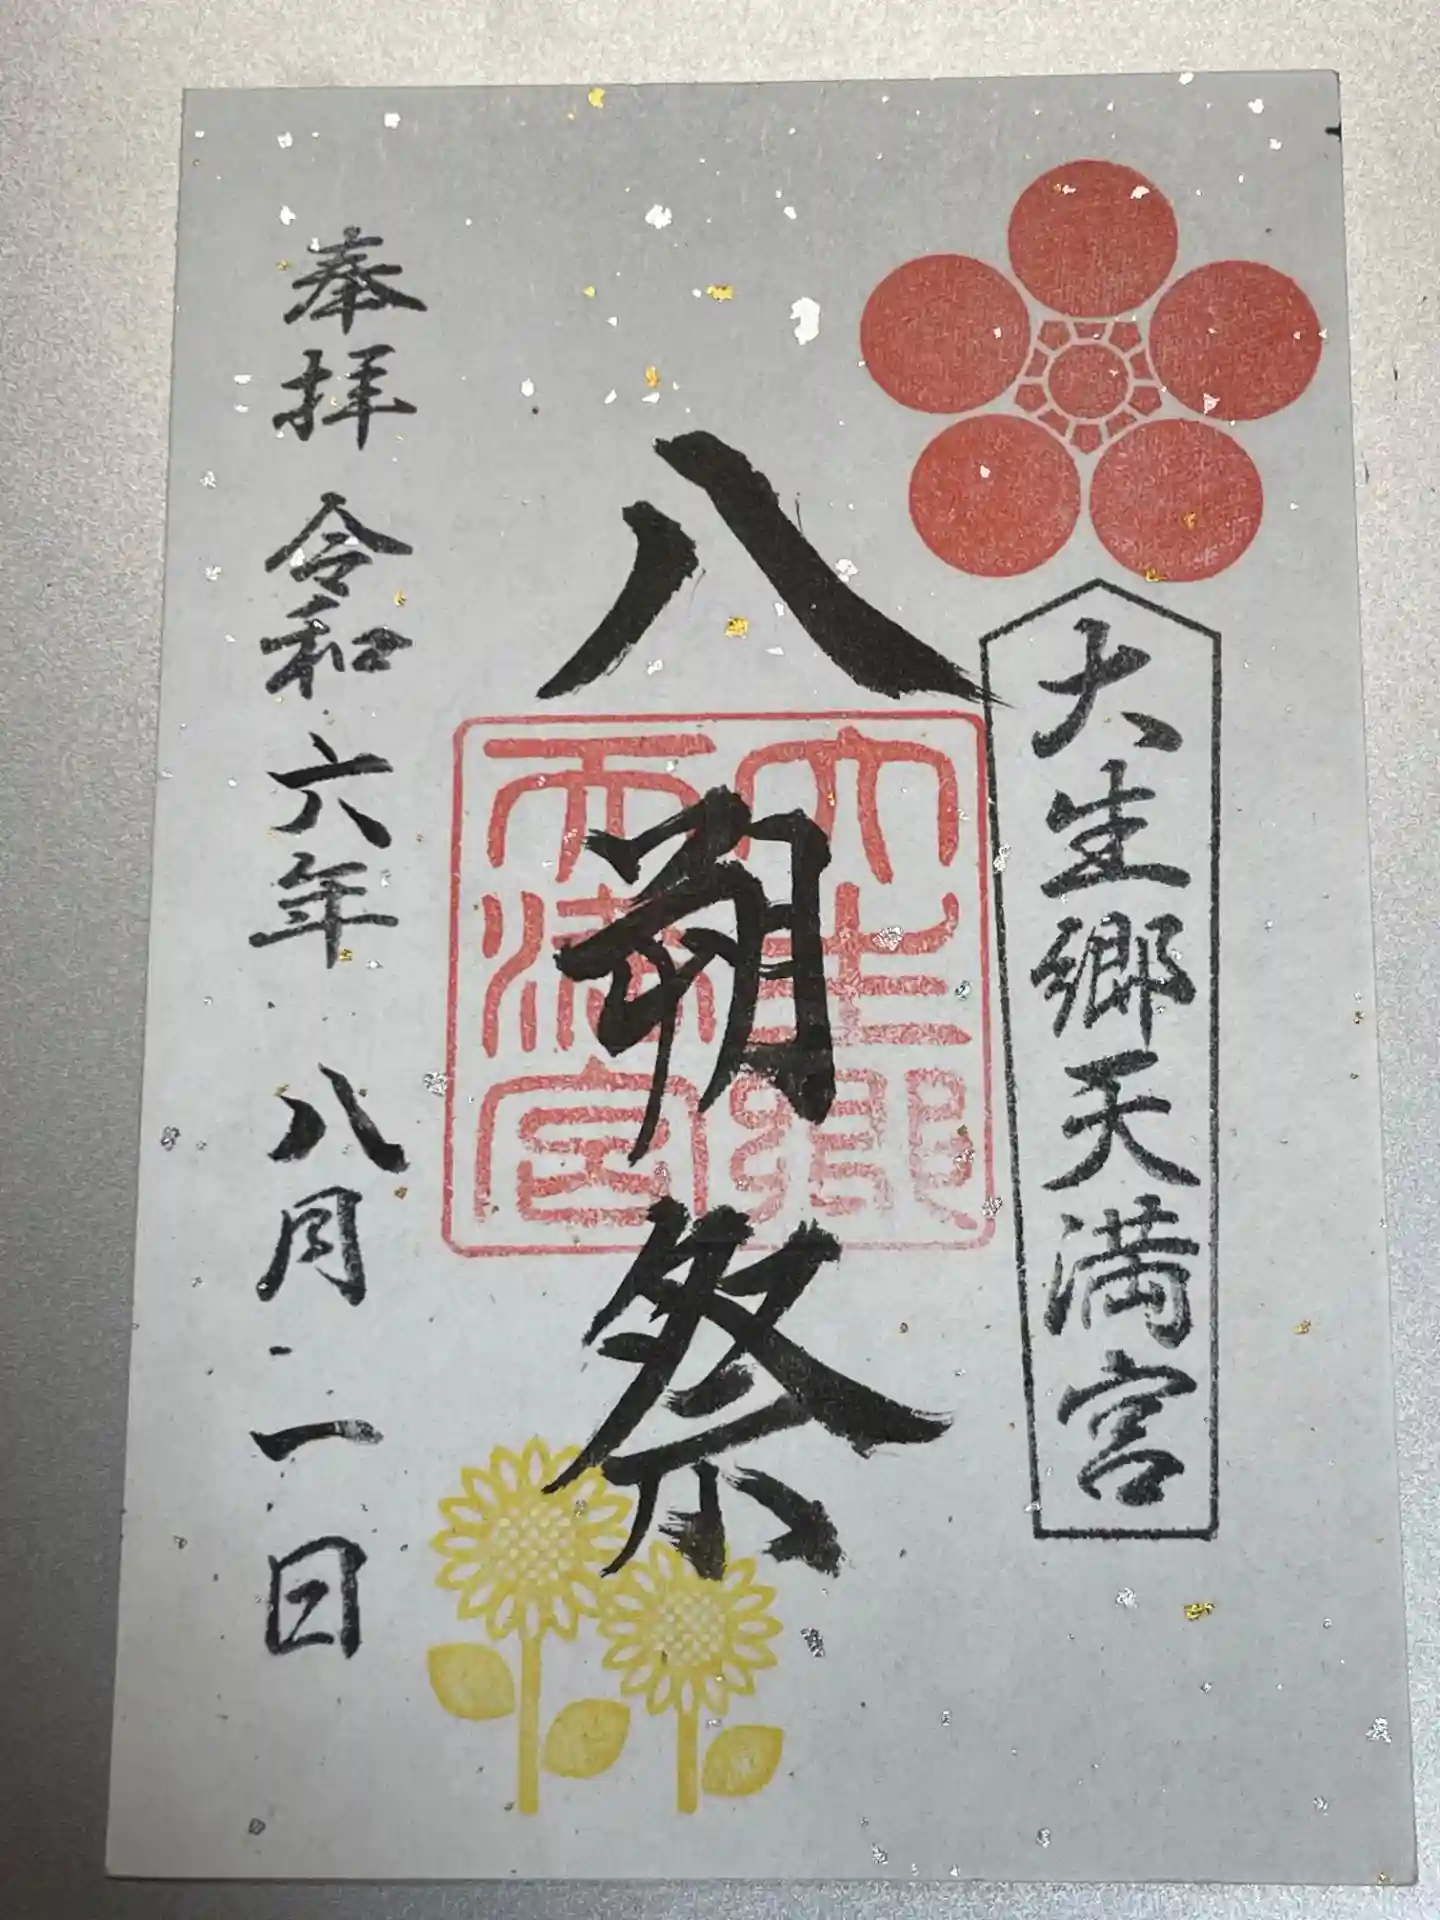 大生郷天満宮
八朔祭
大生郷
天満宮
奉拝 令和六年 八月 一日